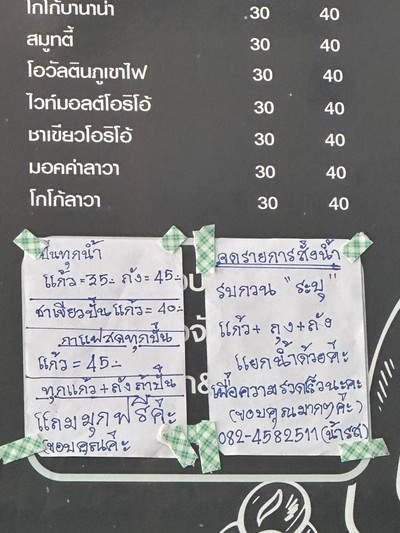 โกโก้มานาน่า 30 40
สมูทตี้ 30 40
โอวัลตินภูเขาไฟ 30 40
ไวท์มอลต์โอริโอ้ 30 40
ชาเขียวโอริโอ้ 30 40
มอคค่าลาวา 30 40
โกโก้ลาวา 30 40
ปั่นทุกน้ำ
แก้ว = 35.- ถัง = 45.-
ชาเขียวปั่นแก้ว = 40.-
กาแฟสดทุกปั่น
แก้ว = 45.-
ทุกแก้ว+ถังถ้าปั่น
แถมมุกฟรีค่ะ
ขอบคุณค่ะ
จดรายการสั่งน้ำ
รบกวน "ระบุ"
แก้ว+ ถุง+ถัง
แยกน้ำด้วยค่ะ
เพื่อความรวดเร็วนะคะ
(ขอบคุณมากๆค่ะ)
082-4582511 (น้ำรส)